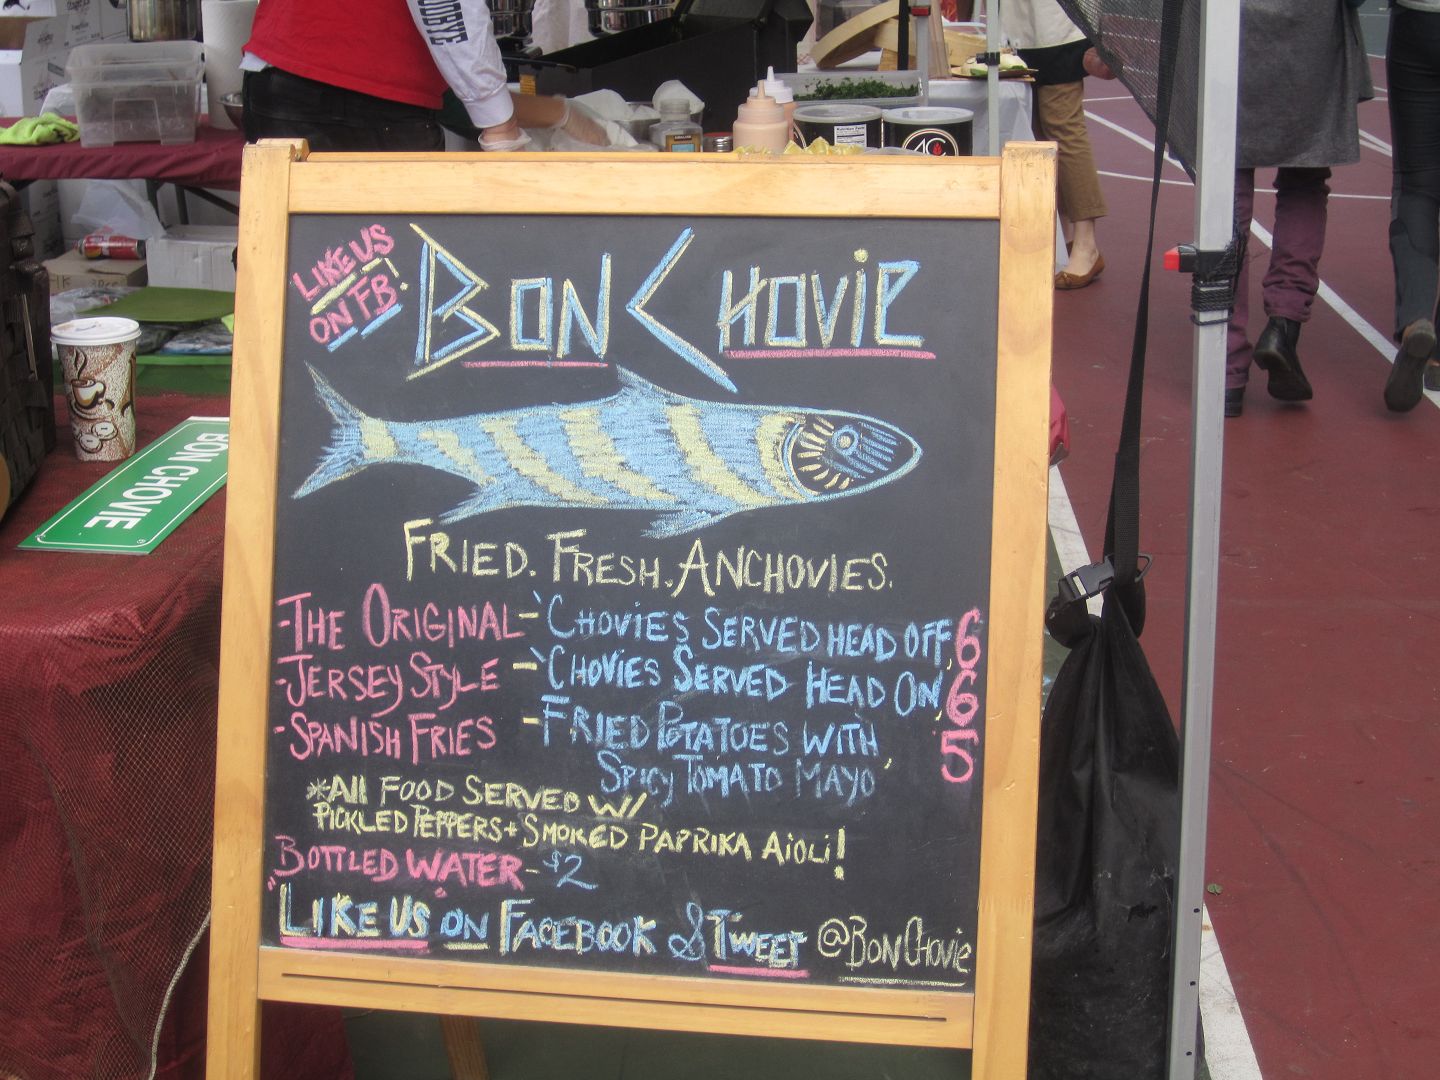 LIKE US
ON FB!
BON CHOVIE
FRIED. FRESH. ANCHOVIES.
-THE ORIGINAL - 'CHOVIES SERVED HEAD OFF, 6
-JERSEY STYLE - 'CHOVIES SERVED HEAD ON, 6
-SPANISH FRIES - FRIED POTATOES WITH, 5
SPICY TOMATO MAYO
*All FOOD SERVED W/
PICKLED PEPPERS + SMOKED PAPRIKA AiOLi!
BOTTLED WATER - $2
LIKE US ON FACEBOOK & TWEET @BONCHOVIE
BON CHOVIE